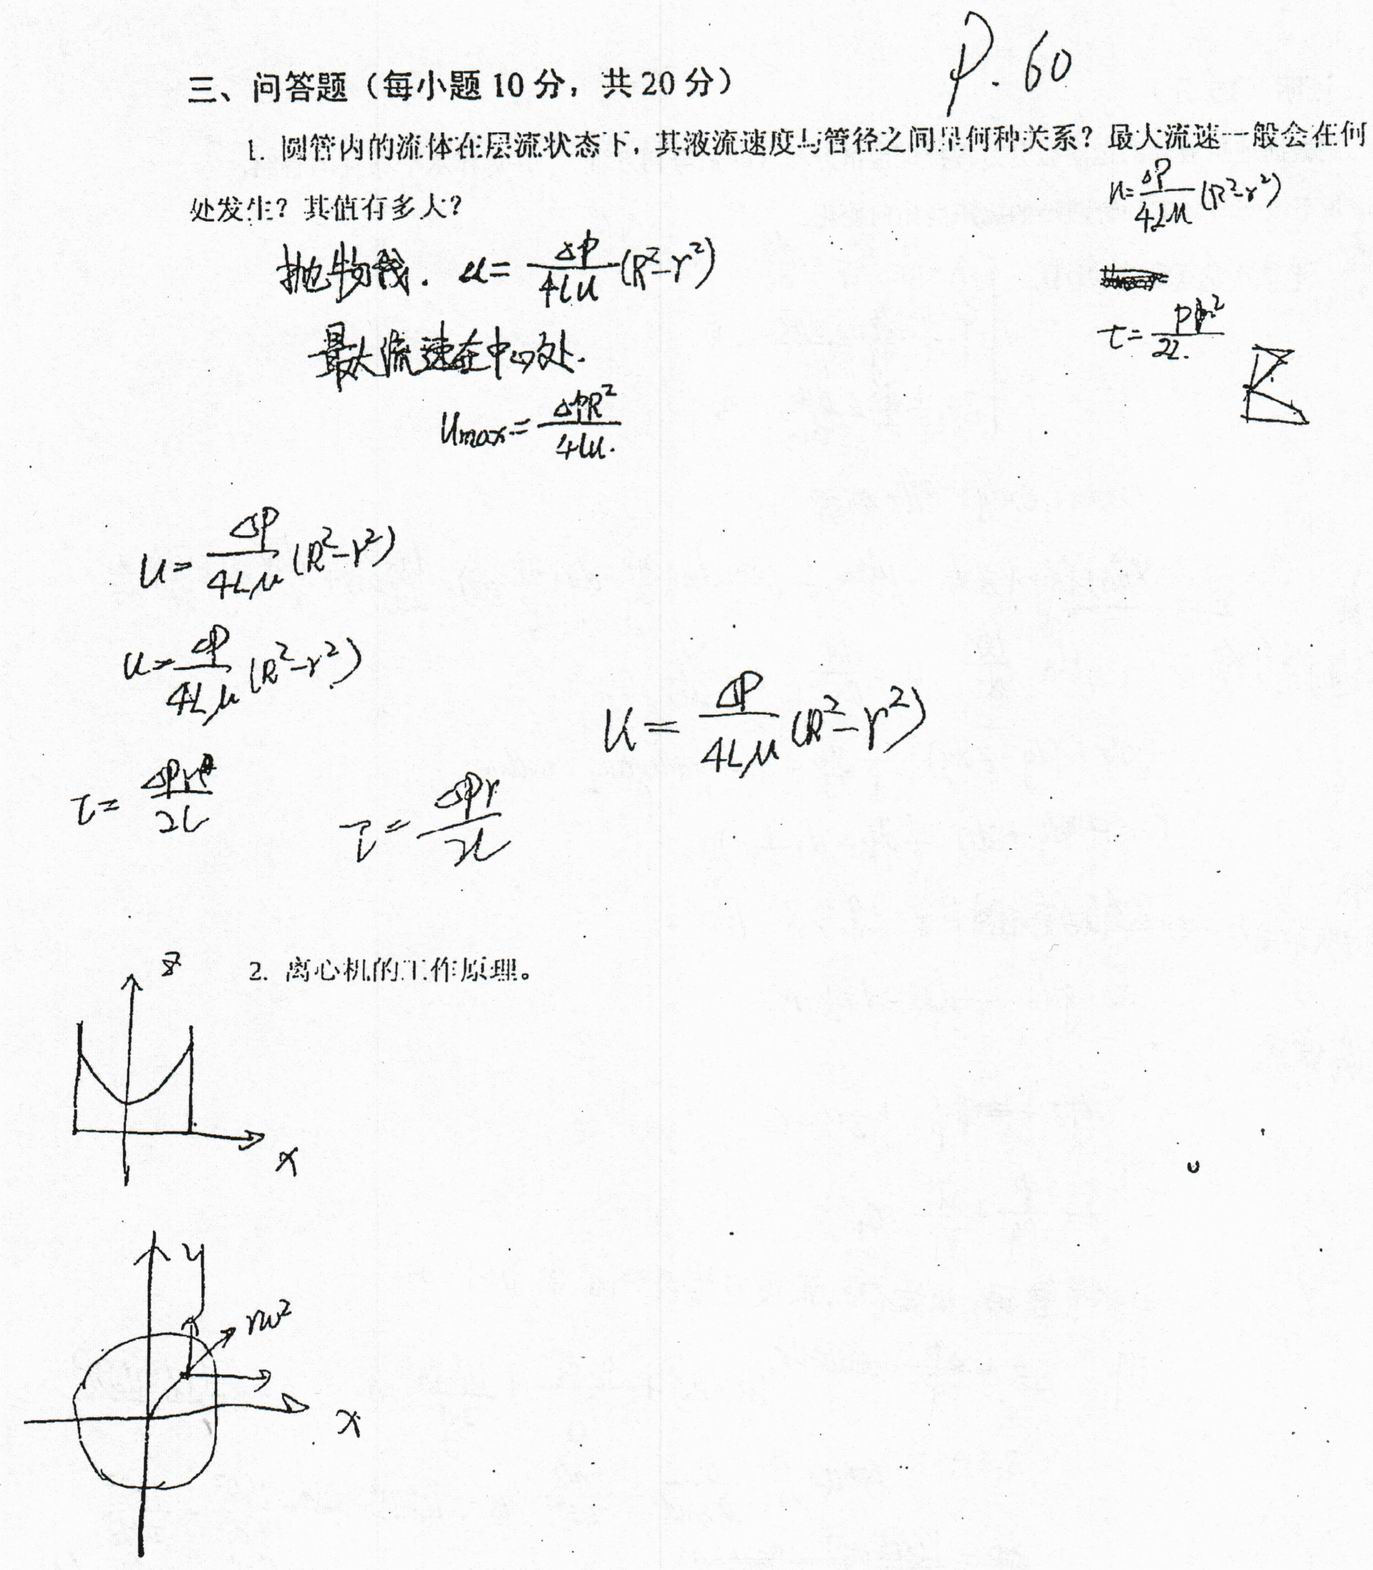 P. 60
三、问答题（每小题 10 分，共 20 分）
1. 圆管内的流体在层流状态下，其液流速度与管径之间呈何种关系？最大流速一般会在何
处发生？其值有多大？
u=ΔP/4Lμ (R²-r²)
抛物线. u=Δp/4Lμ (R²-r²)
τ=Pr²/2L.
最大流速在中心处.
umax=ΔPR²/4Lμ.
u=ΔP/4Lμ (R²-r²)
u=ΔP/4Lμ (R²-r²)
u=ΔP/4Lμ (R²-r²)
τ=ΔPr/2L
τ=ΔPr/2L
2. 离心机的工作原理。
z
x
y
rω²
x